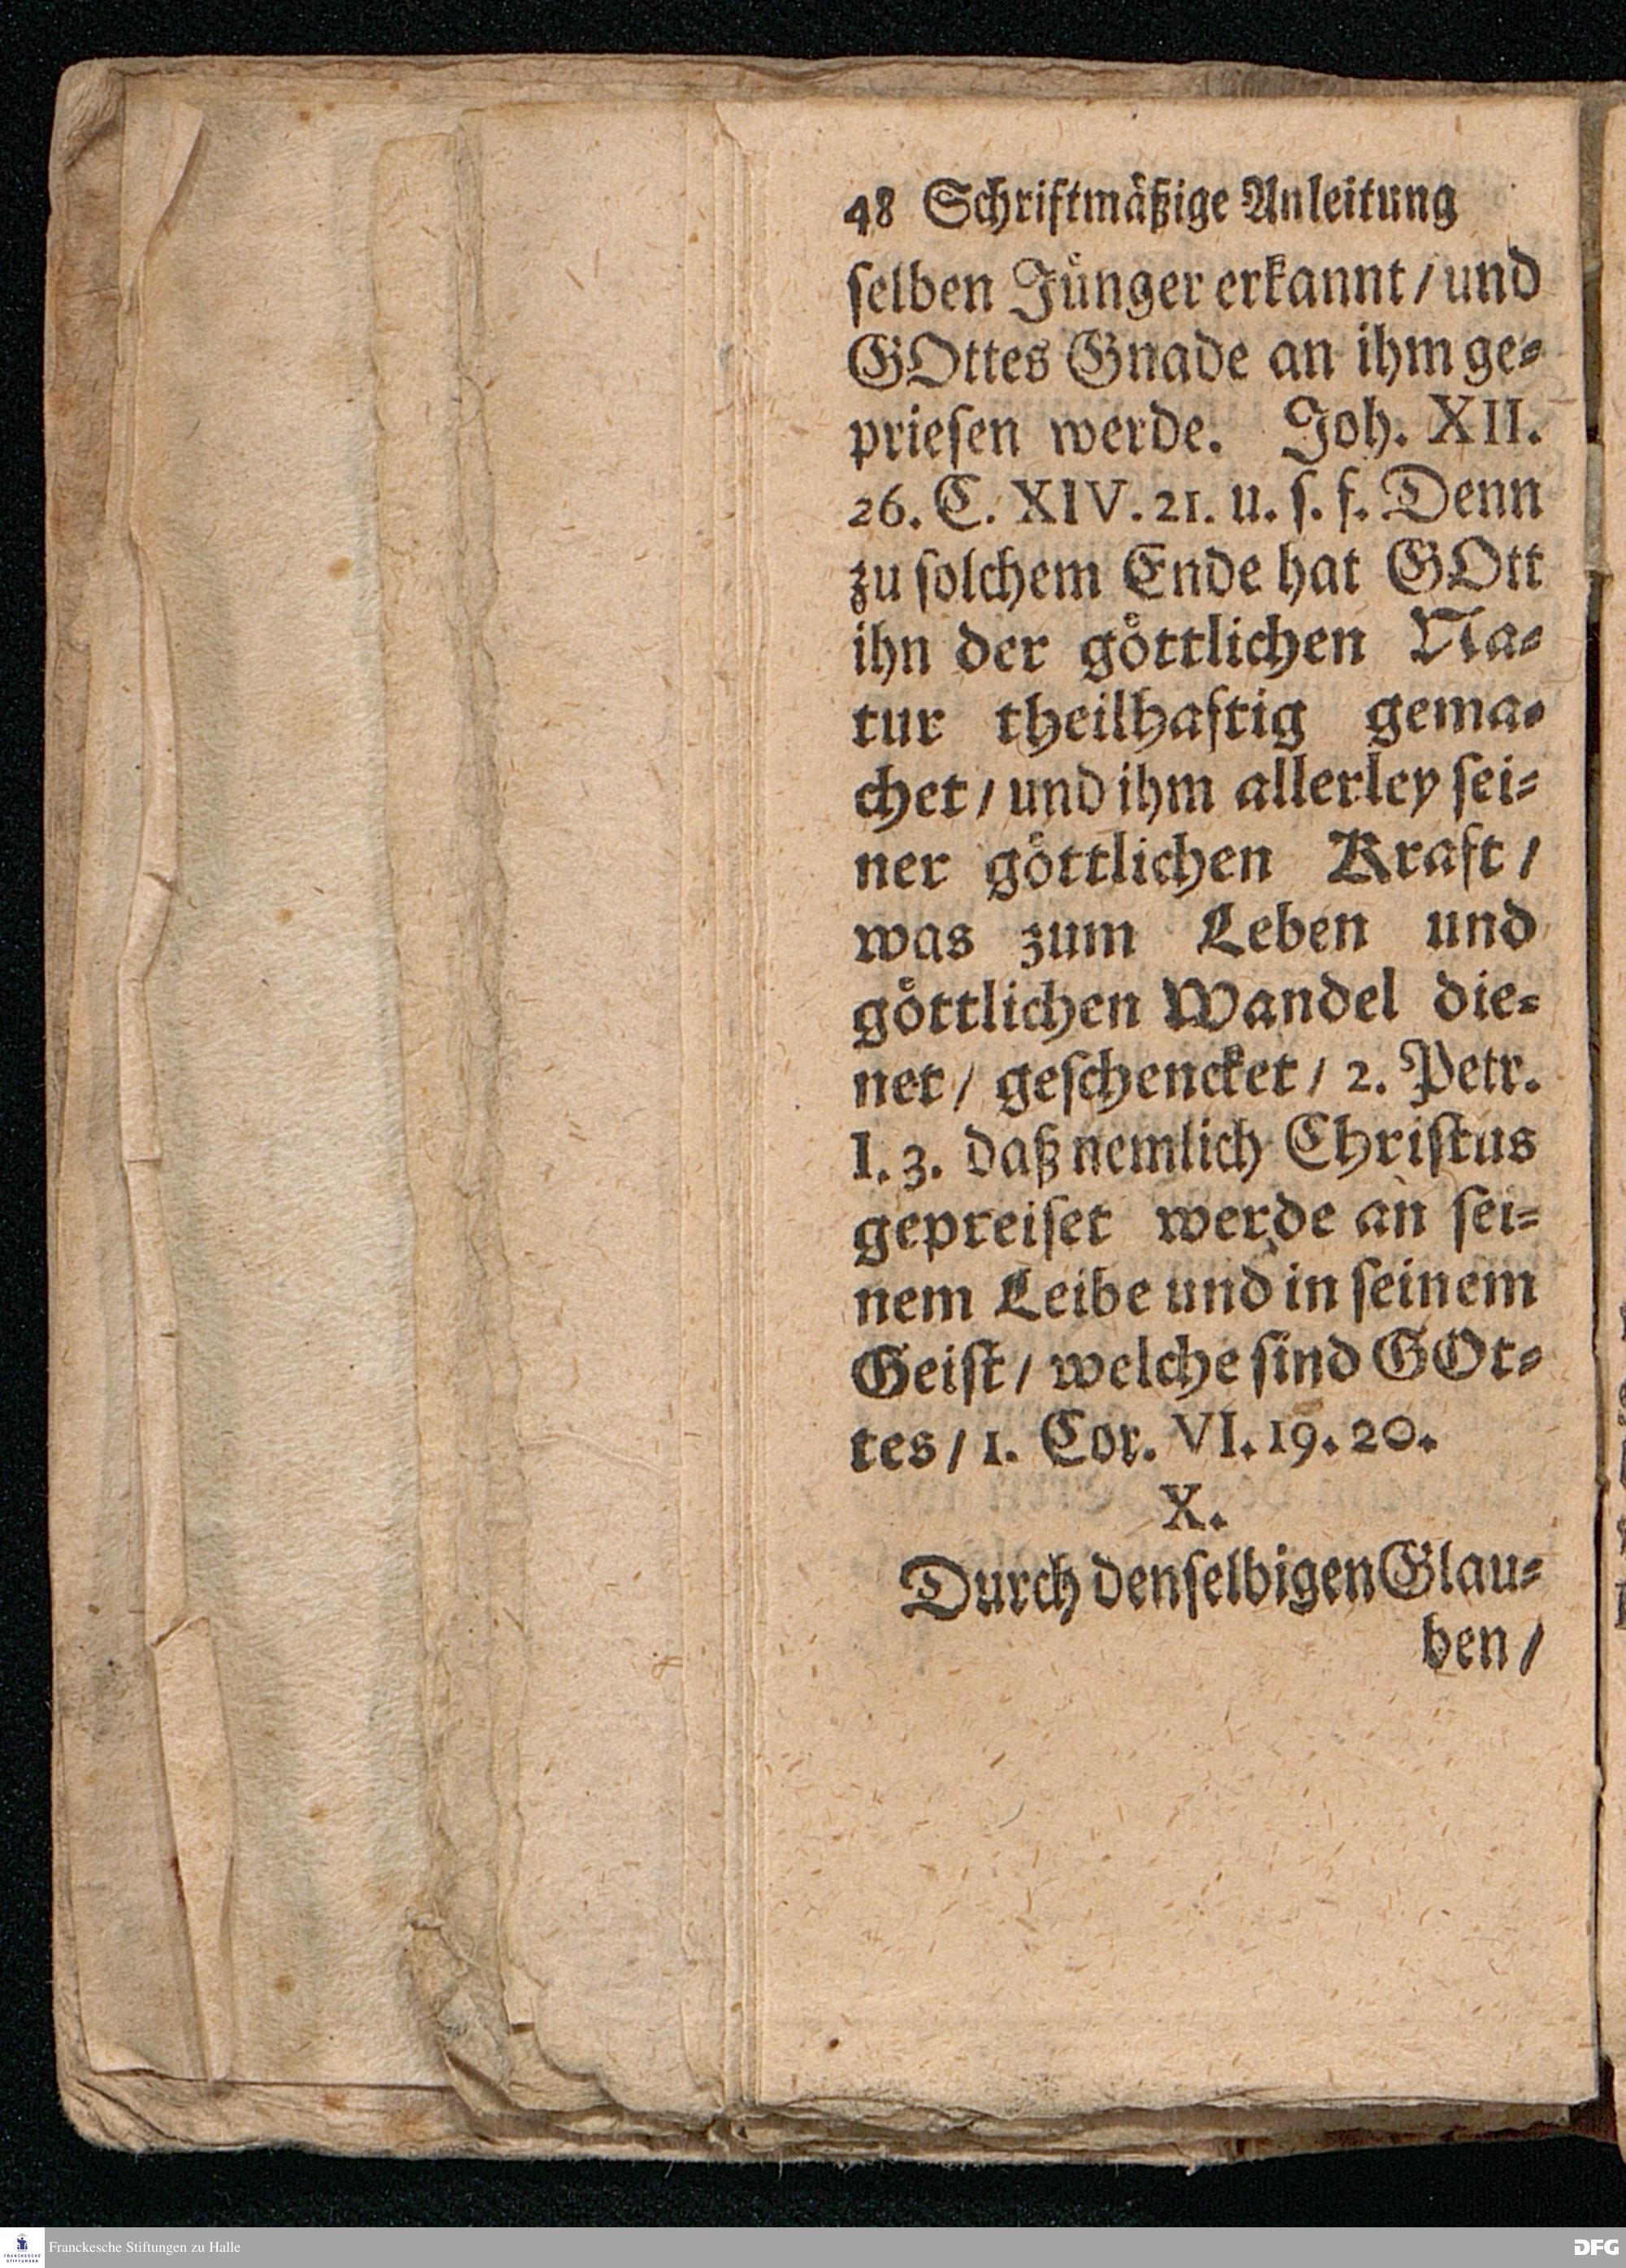 48 Schriftmäßige Anleitung
ſelben Jünger erkannt / und
GOttes Gnade an ihm ge⸗
prieſen werde. Joh. XII.
26. C. XIV. 21. u. ſ. f. Denn
zu ſolchem Ende hat GOtt
ihn der göttlichen Na⸗
tur theilhaftig gema⸗
chet / und ihm allerley ſei⸗
ner göttlichen Kraft /
was zum Leben und
göttlichen Wandel die⸗
net / geſchencket / 2. Petr.
I. 3. daß nemlich Chriſtus
gepreiſet werde an ſei⸗
nem Leibe und in ſeinem
Geiſt / welche ſind GOt⸗
tes / 1. Cor. VI. 19. 20.
X.
Durch denſelbigen Glau⸗
ben /
FRANCKESCHE STIFTUNGEN
Franckesche Stiftungen zu Halle
DFG